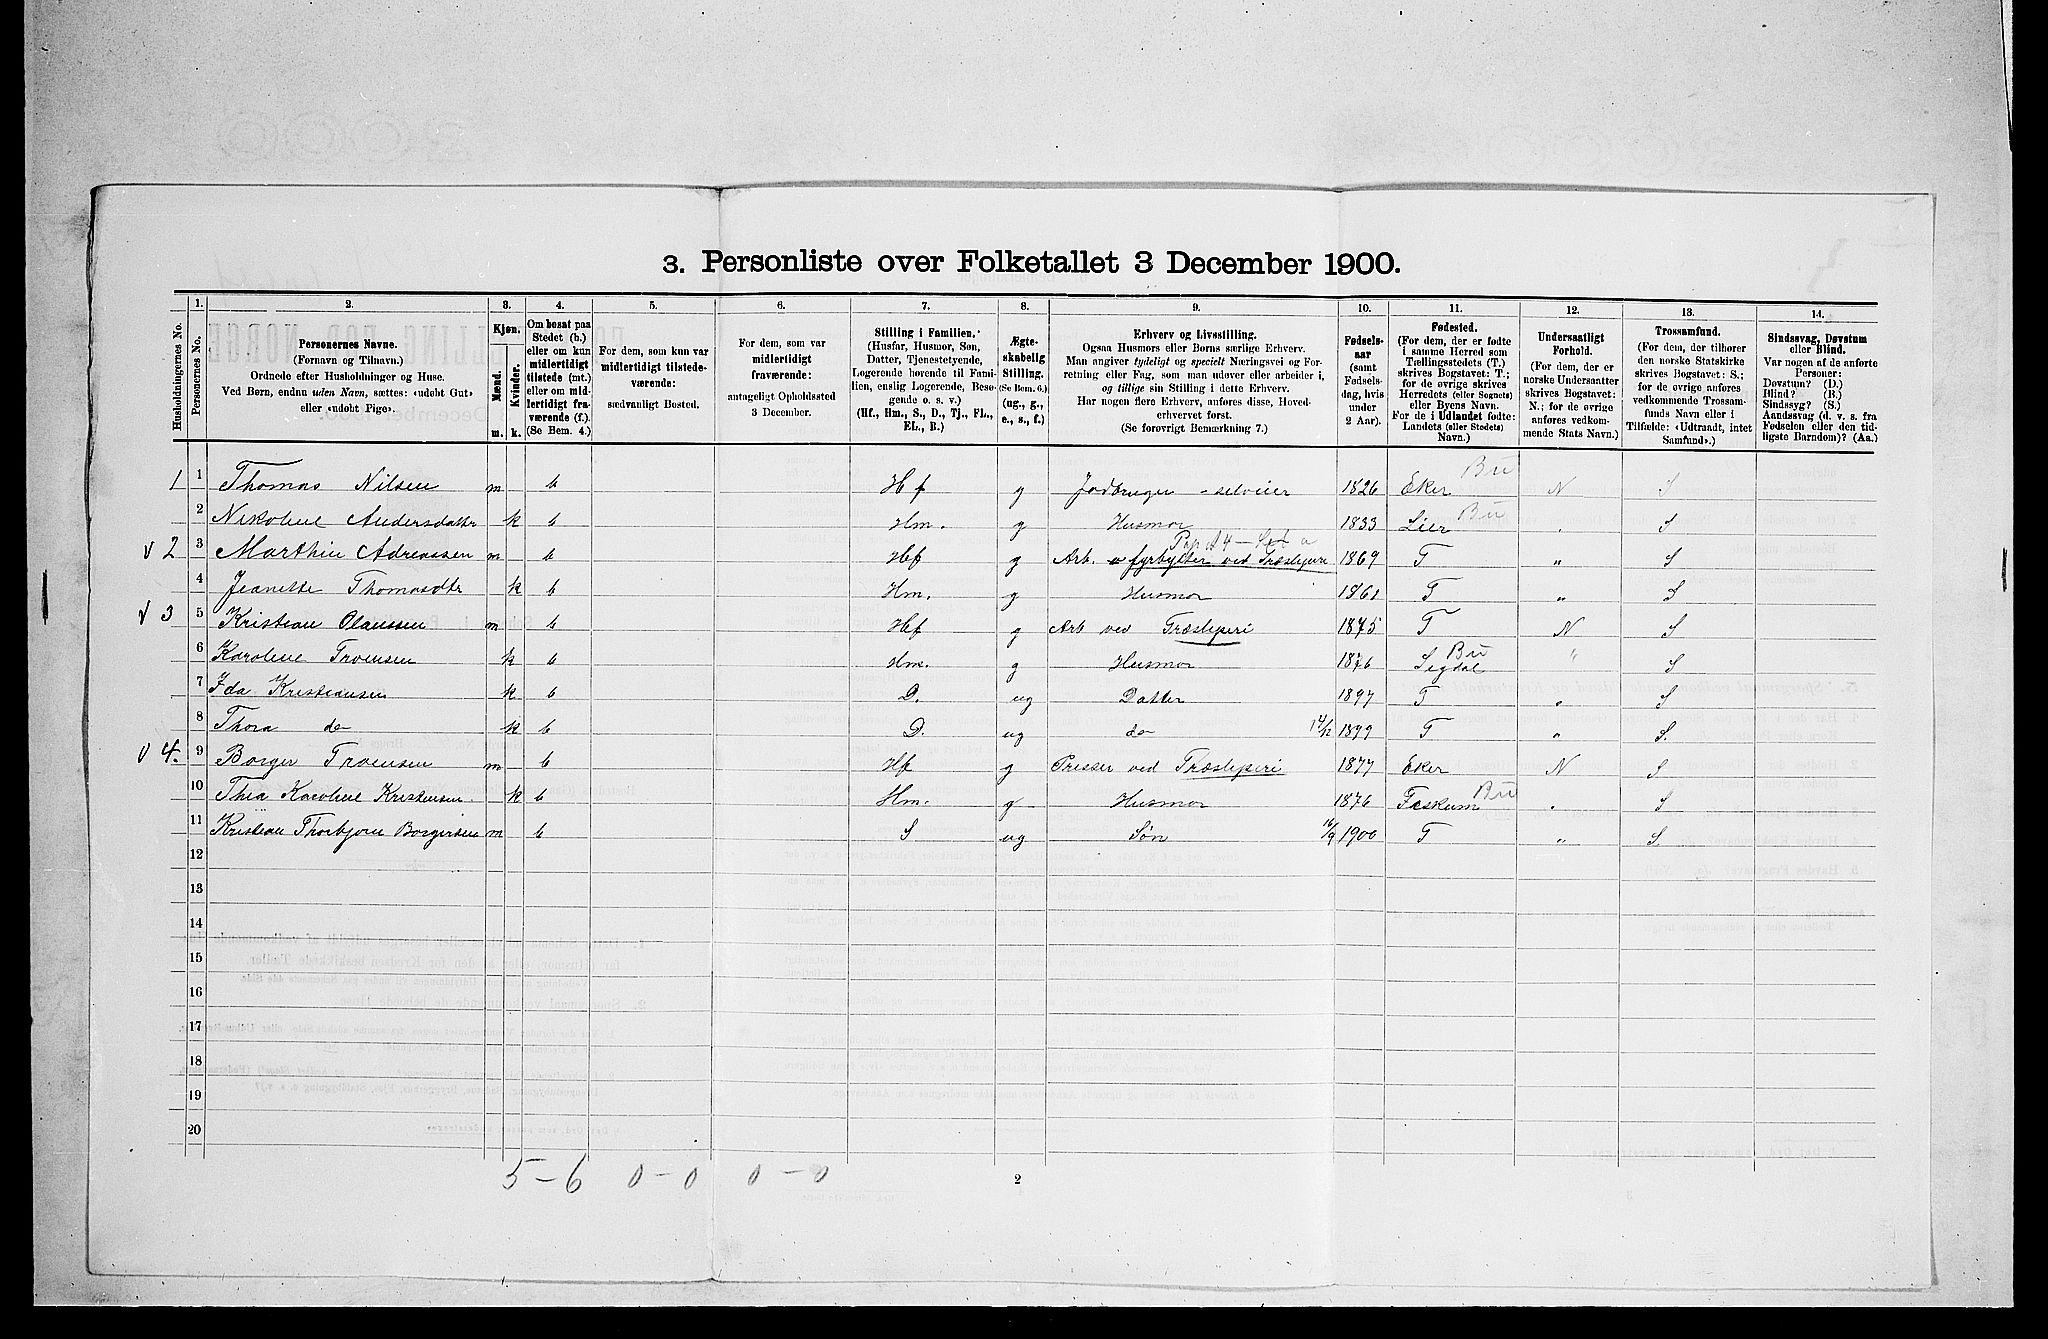 3. Personliste over Folketallet 3 December 1900.
Husholdningernes No.
1.
Personernes No.
2.
Personernes Navne.
(Fornavn og Tilnavn.)
Ordnede efter Husholdninger og Huse.
Ved Børn, endnu uden Navn, sættes: «udøbt Gut»
eller «udøbt Pige».
3.
Kjøn.
Mænd.
Kvinder.
m. k.
4.
Om bosat paa
Stedet (b.)
eller om kun
midlertidigt
tilstede (mt.)
eller om mid-
lertidigt fra-
værende (f.)
(Se Bem. 4.)
5.
For dem, som kun var
midlertidigt tilstede-
værende:
sædvanligt Bosted.
6.
For dem, som var
midlertidigt
fraværende:
antageligt Opholdssted
3 December.
7.
Stilling i Familien.
(Husfar, Husmor, Søn,
Datter, Tjenestetyende,
Logerende hørende til Fami-
lien, enslig Logerende, Besø-
gende o. s. v.)
(Hf., Hm., S., D., Tj., FL.,
EL., B.)
8.
Ægte-
skabelig
Stilling.
(Se Bem. 6.)
(ug., g.,
e., s., f.)
9.
Erhverv og Livsstilling.
Ogsaa Husmors eller Børns særlige Erhverv.
Man angiver tydeligt og specielt Næringsvei og For-
retning eller Fag, som man udøver eller arbeider i,
og tillige sin Stilling i dette Erhverv.
Har nogen flere Erhverv, anføres disse, Hoved-
erhvervet først.
(Se forøvrigt Bemærkning 7.)
10.
Fødsels-
aar
(samt
Fødsels-
dag, hvis
under
2 Aar).
11.
Fødested.
(For dem, der er fødte
i samme Herred som
Tællingsstedets (T.)
skrives Bogstavet: T.;
for de øvrige skrives
Herredets (eller Sognets)
eller Byens Navn.
For de i Udlandet fødte:
Landets (eller Stedets)
Navn.)
12.
Undersaatligt
Forhold.
(For dem, der er
norske Undersaatter
skrives Bogstavet:
N.; for de øvrige
anføres vedkom-
mende Stats Navn.)
13.
Trossamfund.
(For dem, der tilhører
den norske Statskirke
skrives Bogstavet: S.;
for de øvrige anføres
vedkommende Trossam-
funds Navn eller i
Tilfælde: «Udtraadt, intet
Samfund».)
14.
Sindssvag, Døvstum
eller Blind.
Var nogen af de anførte
Personer:
Døvstum? (D.)
Blind? (B.)
Sindssyg? (S.)
Aandssvag (d. v. s. fra
Fødselen eller den tid-
ligste Barndom)? (Aa.)
1 1 Thomas Nilsen m b Hf g Jordbruger - selveier 1826 Eker Bu N S
2 Nikoline Andersdattr k b Hm. g Husmor 1833 Lier Bu . S
v 2 3 Marthin Adreassen m b Hf g Arb. fyrbylter ved Træsliperi 1869 T „ S
4 Jeanette Thomasdtr k b Hm. g Husmor 1861 T „ S
v 3 5 Kristian Olaussen m b Hf g Arb ved Træsliperi 1875 T N S
6 Karoline Troensen k b Hm. g Husmor 1876 Sigdal Bu " S
7 Ida Kristiansen k b D. ug Datter 1897 T „ S
8 Thora do k b D. ug do 14/12 1899 T „ S.
v 4. 9 Borger Troensen m b Hf g Presser ved Træsliperi 1877 Eker N S
10 Thea Karoline Kristensen. k b Hm. g Husmor 1876 Feskum Bu . S
11 Kristian Thorbjørn Borgersen m b S ug Søn 16/9 1900 T „ S.
12
13
14
15
16
17
18
19
20
5 - 6 0 - 0 0 - 0
2